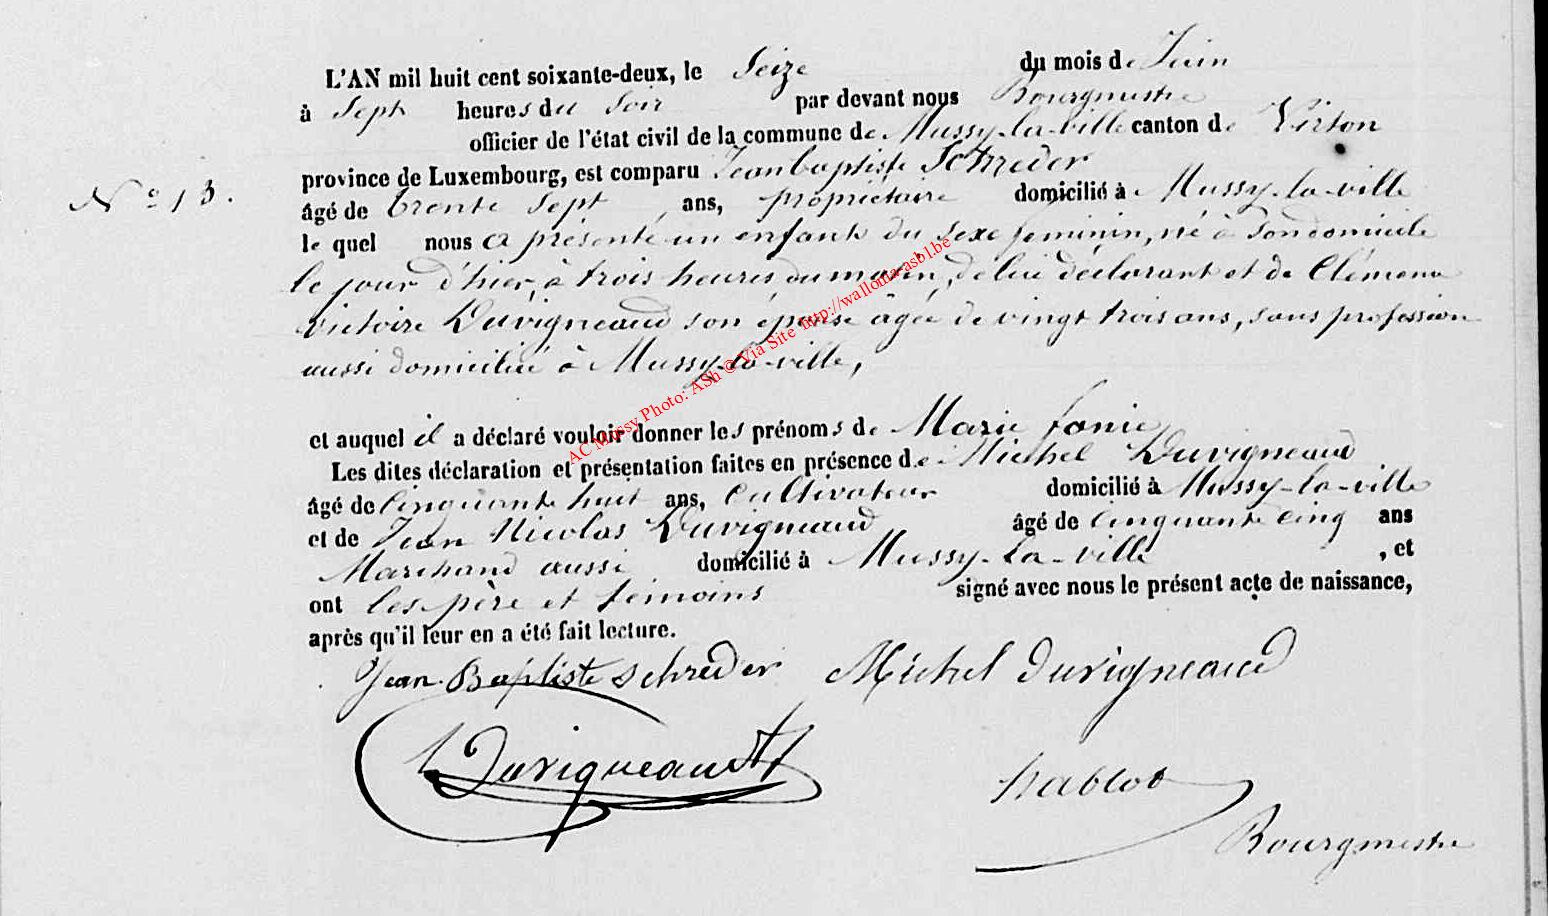 L'AN mil huit cent soixante-deux, le Seize du mois de Juin
à Sept heures du Soir par devant nous Bourgmestre
officier de l'état civil de la commune de Mussy-la-ville canton de Virton
province de Luxembourg, est comparu Jean baptiste Schreder
N° 13.
âgé de trente Sept ans, propriétaire domicilié à Mussy-la-ville
le quel nous a présenté un enfant du sexe féminin, né à Son domicile
le jour d'hier, à trois heures du matin, de lui déclarant et de Clémence
Victoire Duvigneaud son épouse âgée de vingt trois ans, sans profession
aussi domiciliée à Mussy-la-ville,
et auquel il a déclaré vouloir donner les prénoms de Marie fanie
Les dites déclaration et présentation faites en présence de Michel Duvigneaud
âgé de Cinquante huit ans, Cultivateur domicilié à Mussy-la-ville
et de Jean Nicolas Duvigneaud âgé de Cinquante cinq ans
Marchand aussi domicilié à Mussy-la-ville, et
ont les père et témoins signé avec nous le présent acte de naissance,
après qu'il leur en a été fait lecture.
Jean Baptiste Schreder Michel Duvigneaud
Duvigneaud
Bourgmestre
AC Mussy Photo: ASh © Via Site http://wallonia-asbl.be